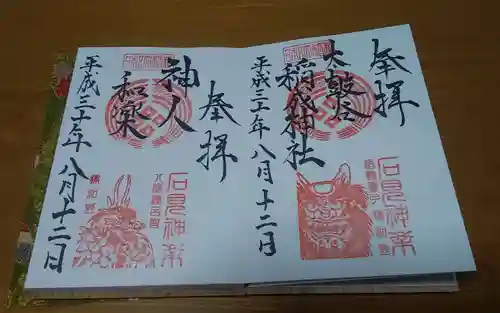 奉拝
太皷谷
稲成神社
平成三十年八月十二日
石見神楽
奉拝
神人
和楽
平成三十年八月十二日
石見神楽